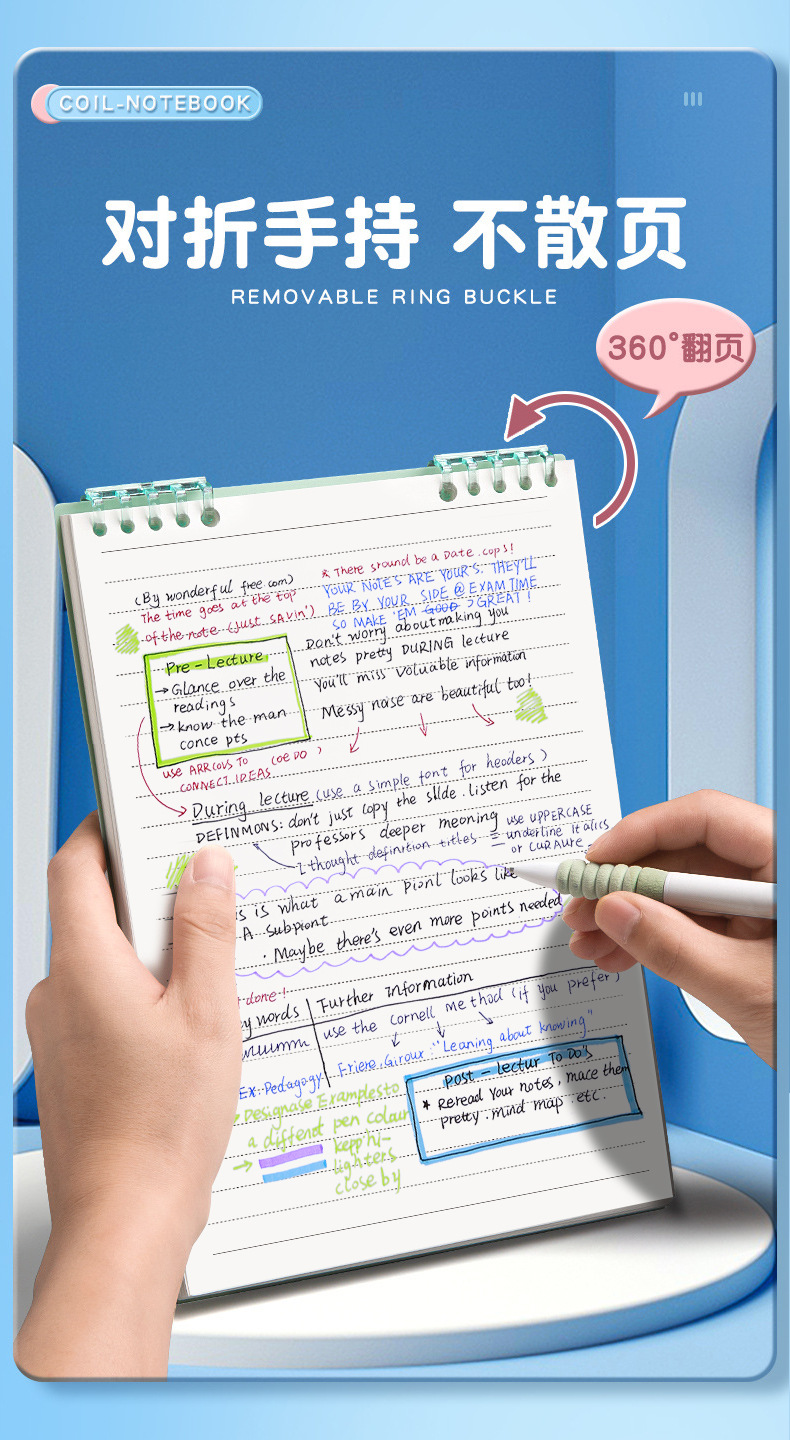 COIL-NOTEBOOK
对折手持 不散页
REMOVABLE RING BUCKLE
360°翻页
(By wonderful free com)
The time goes at the top
of the note (just SAvin')
* There sround be a Date .cops!
YOUR NOTE'S ARE YOUR'S. THEY'LL
BE BY YOUR SIDE @ EXAM TIME
SO MAKE 'EM GOOD GREAT!
Pre-Lecture
→Glance over the
readings
→know the man
conce pts
Don't worry about making you
notes pretty DURING lecture
you'll miss valuable information
Messy noise are beautiful too!
use ARROWS TO (OE DO )
CONNECT IDEAS
During lecture (use a simple font for headers)
DEFINMONS: don't just copy the slide .listen for the
professors deeper meoning
I thought definition titles =
use UPPERCASE
underline italics
or CURAURE
s is what a main pionl looks like
A subpiont
. Maybe there's even more points needed
done!
y words
Further Information
use the cornell me thod (if you prefer)
Friere.Giroux "Leaning about knowing"
Ex. Pedagogy
Designase Examplesto
a diffend pen colour
kepp hi-
lighters
close by
post-lectur To Do's
* Reread Your notes, mace them
pretty .mind map .etc.